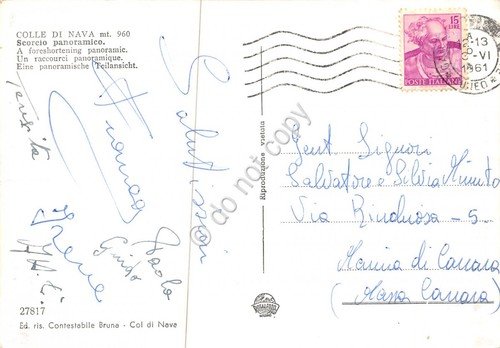 COLLE DI NAVA mt. 960
Scorcio panoramico.
A foreshortening panoramic.
Un raccourci panoramique.
Eine panoramische Teilansicht.
Saluti
Irene
Paola
Guido
27817
Ed. ris. Contestabile Bruna - Col di Nava
Riproduzione vietata
do not copy
15
LIRE
POSTE ITALIANE
13
-VI
1961
Gent Signori
Salvatore e Silvia Minuto
Via 5
Marina di Carrara
(Massa Carrara)